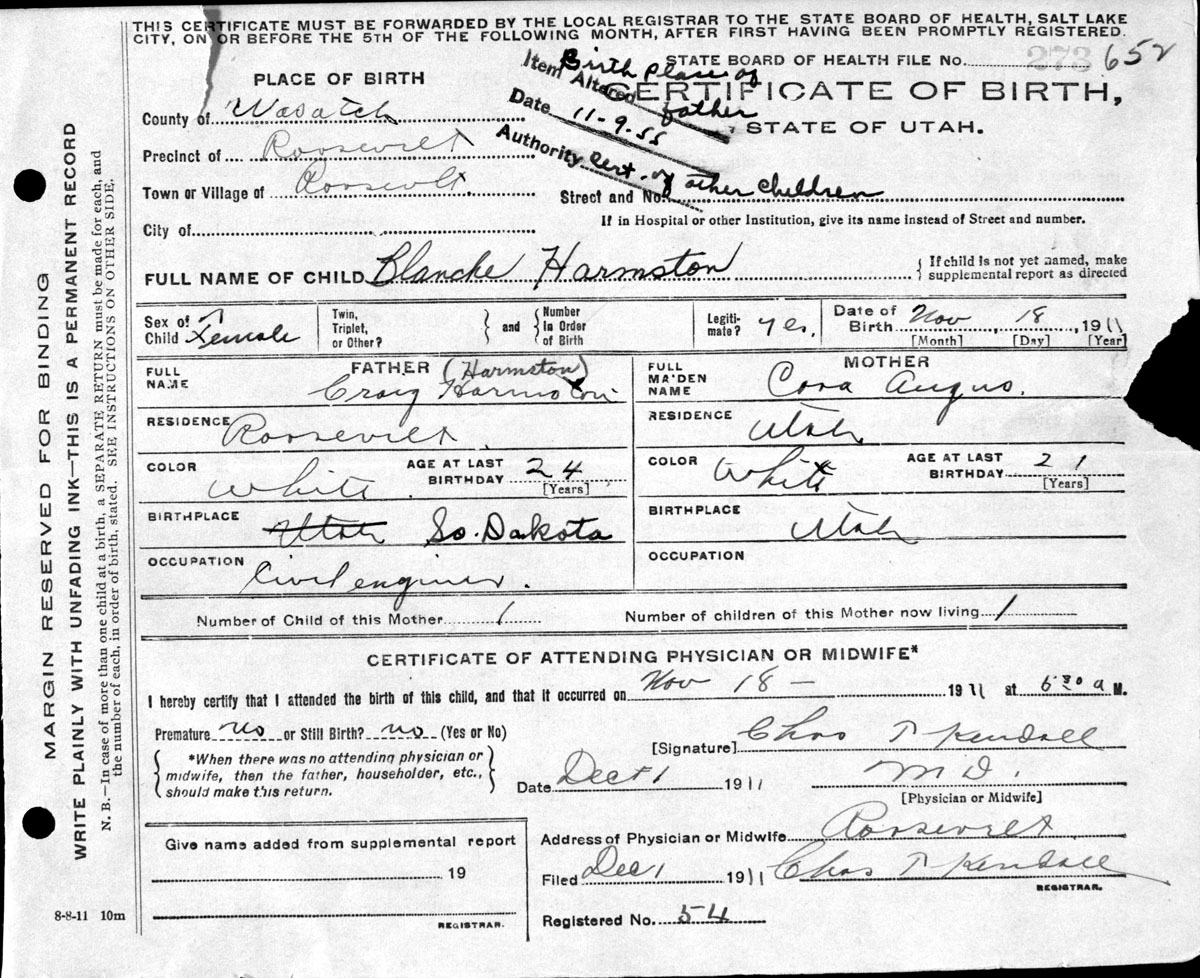 THIS CERTIFICATE MUST BE FORWARDED BY THE LOCAL REGISTRAR TO THE STATE BOARD OF HEALTH, SALT LAKE
CITY, ON OR BEFORE THE 5TH OF THE FOLLOWING MONTH, AFTER FIRST HAVING BEEN PROMPTLY REGISTERED.
STATE BOARD OF HEALTH FILE NO. 273 652
PLACE OF BIRTH
CERTIFICATE OF BIRTH,
STATE OF UTAH.
Item Altered Birth place of father
Date 11-9-55
Authority Cert. of other children
County of Wasatch
Precinct of Roosevelt
Town or Village of Roosevelt.
Street and No.
If in Hospital or other Institution, give its name instead of Street and number.
City of
FULL NAME OF CHILD Blanche Harmston
{ If child is not yet named, make
supplemental report as directed
Sex of Child Female
Twin, Triplet, or Other?
and
Number in Order of Birth
Legiti-mate? yes.
Date of Birth Nov 18, 1911
[Month] [Day] [Year]
FATHER (Harmston)
FULL NAME Craig Harmston
RESIDENCE Roosevelt.
COLOR White.
AGE AT LAST BIRTHDAY 24
[Years]
BIRTHPLACE Utah So. Dakota
OCCUPATION Civil engineer.
MOTHER
FULL MAIDEN NAME Cora Angus.
RESIDENCE Utah
COLOR White
AGE AT LAST BIRTHDAY 21
[Years]
BIRTHPLACE Utah
OCCUPATION
Number of Child of this Mother 1
Number of children of this Mother now living 1
CERTIFICATE OF ATTENDING PHYSICIAN OR MIDWIFE*
I hereby certify that I attended the birth of this child, and that it occurred on Nov 18 - 1911 at 6 30 a M.
Premature no or Still Birth? no (Yes or No)
*When there was no attending physician or
midwife, then the father, householder, etc.,
should make this return.
[Signature] Chas T Kendall
Date Dec 1 1911
M D.
[Physician or Midwife]
Give name added from supplemental report
19
REGISTRAR.
Address of Physician or Midwife Roosevelt
Filed Dec 1 1911 Chas T Kendall
REGISTRAR.
Registered No. 54
8-8-11 10m
MARGIN RESERVED FOR BINDING
WRITE PLAINLY WITH UNFADING INK—THIS IS A PERMANENT RECORD
N. B.—In case of more than one child at a birth, a SEPARATE RETURN must be made for each, and
the number of each, in order of birth, stated. SEE INSTRUCTIONS ON OTHER SIDE,